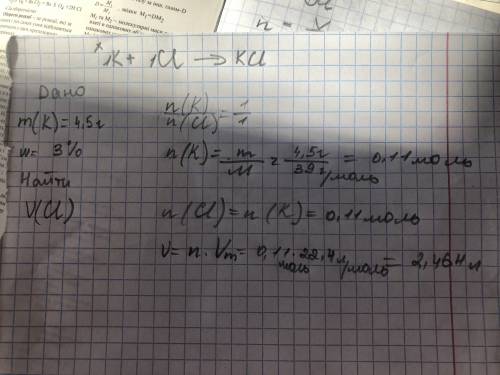 1K + 1Cl → KCl
Дано
m(K) = 4,5г
w = 3%
Найти
V(Cl)
n(K)/n(Cl) = 1/1
n(K) = m/M = 4,5г/39г/моль = 0,11моль
n(Cl) = n(K) = 0,11моль
V = n · Vm = 0,11моль · 22,4л/моль = 2,464л